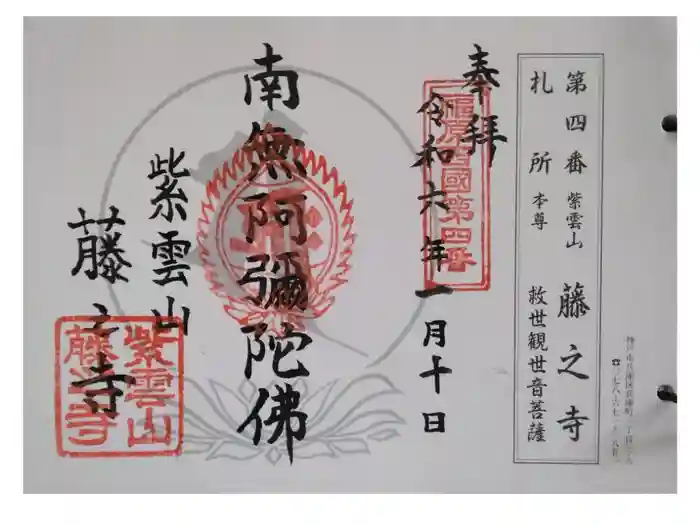 第四番 紫雲山 藤之寺
札所 本尊 救世観世音菩薩
奉拝
令和六年一月十日
福原西國第四番
南無阿彌陀佛
紫雲山
藤之寺
紫雲山
藤之寺